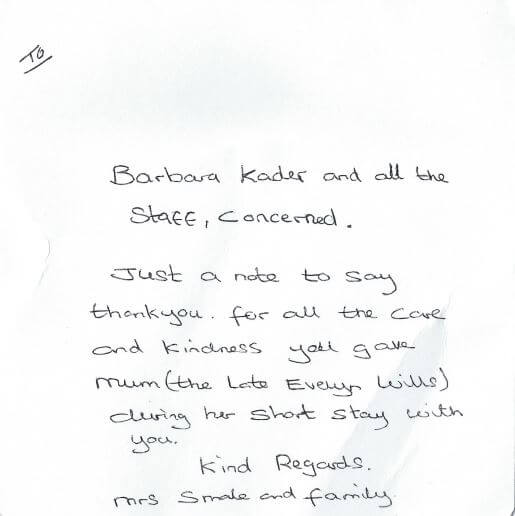 To
Barbara Kader and all the
Staff, Concerned.
Just a note to say
thankyou. for all the care
and kindness you gave
mum (the late Evelyn Wills)
during her short stay with
you.
Kind Regards.
mrs Smale and family.